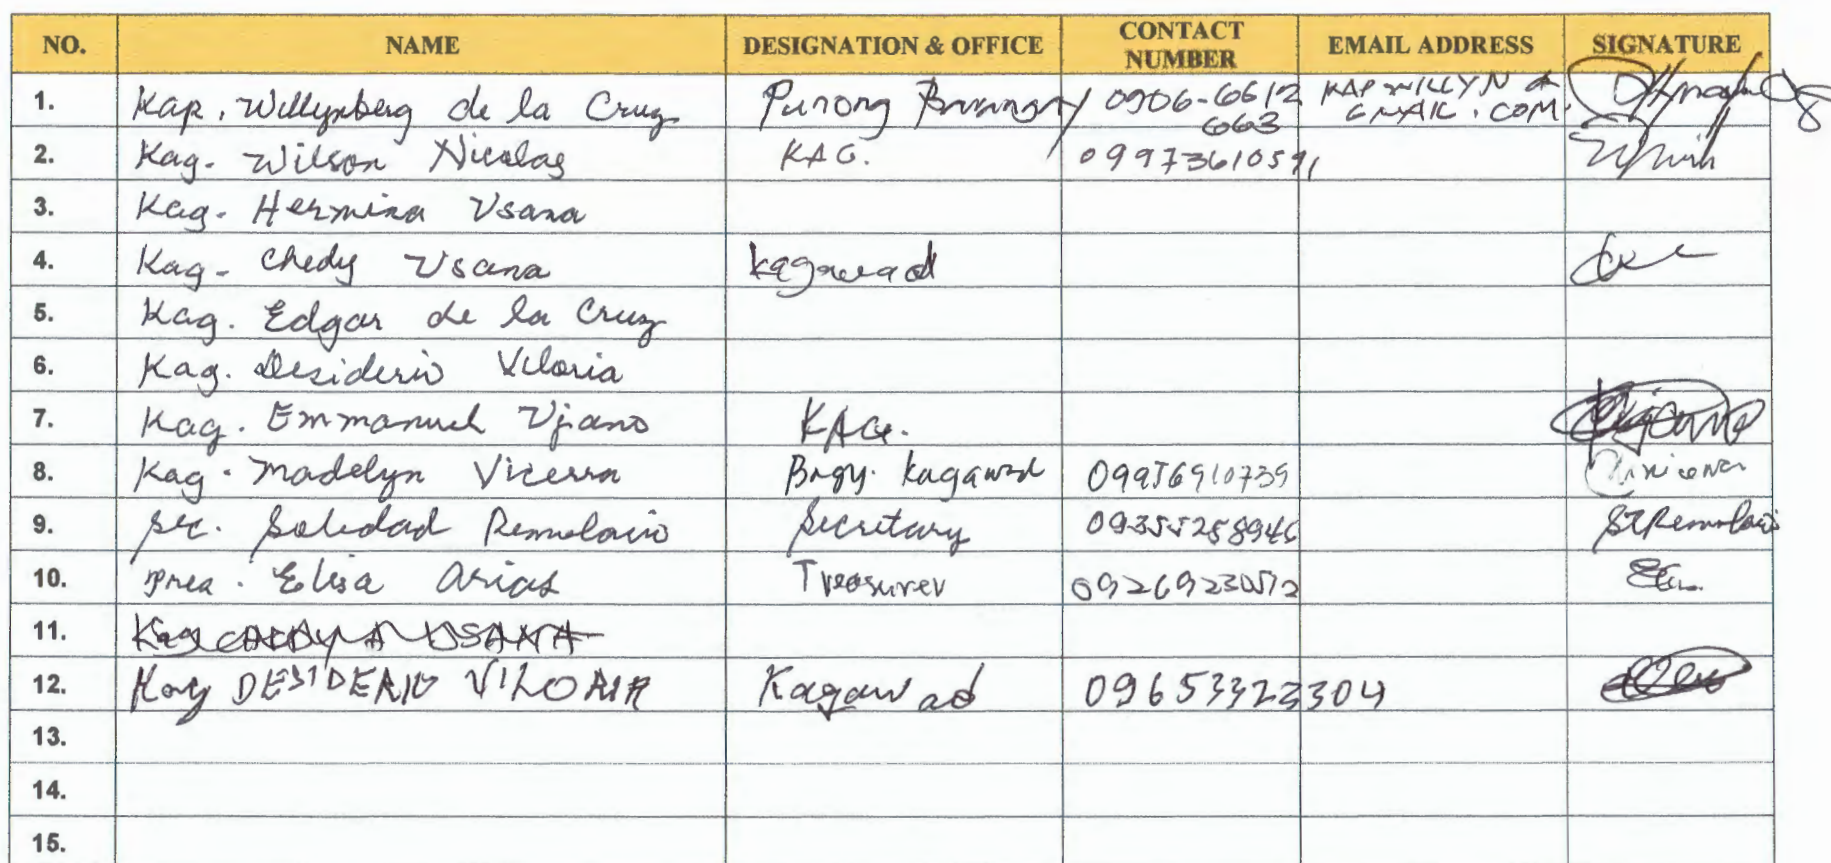 NO. NAME DESIGNATION & OFFICE CONTACT NUMBER EMAIL ADDRESS SIGNATURE
1. Kap. Willynberg de la Cruz Punong 0906-6612 663 KAPWILLYN @ GMAIL.COM
2. Kag. Wilson Nicolas KAG. 09973610591
3. Kag. Hermina Usana
4. Kag. Chedy Usana Kagawad
5. Kag. Edgar de la Cruz
6. Kag. Desiderio Viloria
7. Kag. Emmanuel Viano KAG.
8. Kag. Madelyn Vicerra Brgy. Kagawad 09956910739
9. Sec. Soledad Remolacio Secretary 09355258946
10. Trea. Elisa Arias Treasurer 09269230512
11. Kag USANA
12. Kag DESIDERIO VILORIA Kagawad 09653322304
13.
14.
15.